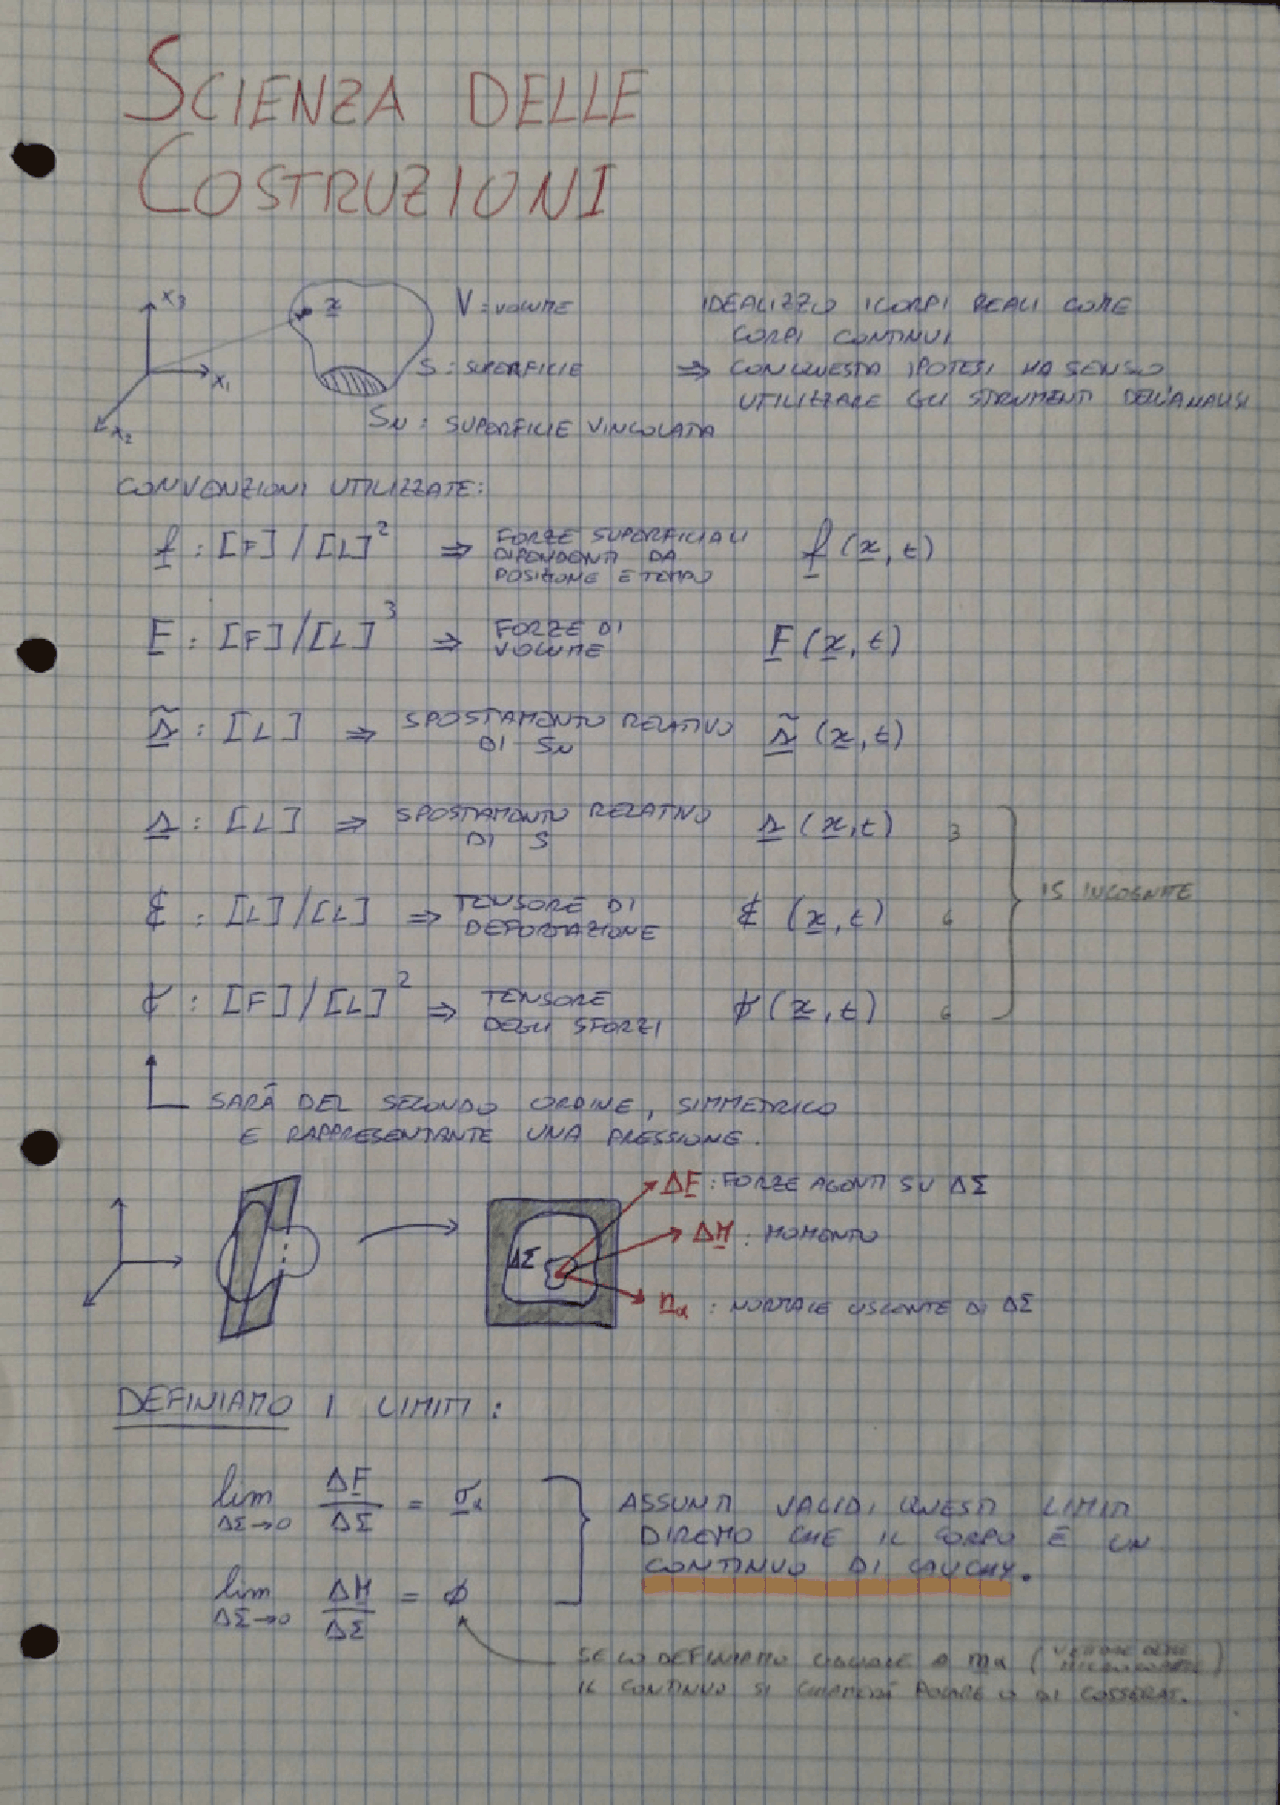 SCIENZA DELLE
COSTRUZIONI
x3
x
x1
x2
V : VOLUME
S : SUPERFICIE
Sν : SUPERFICIE VINCOLATA
IDEALIZZO I CORPI REALI COME
CORPI CONTINUI
⇒ CON QUESTA IPOTESI HA SENSO
UTILIZZARE GLI STRUMENTI DELL'ANALISI
CONVENZIONI UTILIZZATE:
f : [F] / [L]² ⇒ FORZE SUPERFICIALI
DIPENDENTI DA
POSIZIONE E TEMPO
f (x, t)
F : [F] / [L]³ ⇒ FORZE DI
VOLUME
F (x, t)
s̃ : [L] ⇒ SPOSTAMENTO RELATIVO
DI Sν
s̃ (x, t)
s : [L] ⇒ SPOSTAMENTO RELATIVO
DI S
s (x, t) 3
15 INCOGNITE
ɛ : [L] / [L] ⇒ TENSORE DI
DEFORMAZIONE
ɛ (x, t) 6
σ : [F] / [L]² ⇒ TENSORE
DEGLI SFORZI
σ (x, t) 6
SARÀ DEL SECONDO ORDINE, SIMMETRICO
E RAPPRESENTANTE UNA PRESSIONE.
ΔΣ
ΔF : FORZE AGENTI SU ΔΣ
ΔM : MOMENTO
nα : NORMALE USCENTE DI ΔΣ
DEFINIAMO I LIMITI :
lim ΔΣ→0 ΔF / ΔΣ = σα
lim ΔΣ→0 ΔM / ΔΣ = ϕ
ASSUNTI VALIDI QUESTI LIMITI
DIREMO CHE IL CORPO È UN
CONTINUO DI CAUCHY.
SE LO DEFINIAMO UGUALE A mα (
)
IL CONTINUO SI CHIAMERÀ POLARE O DI COSSERAT.